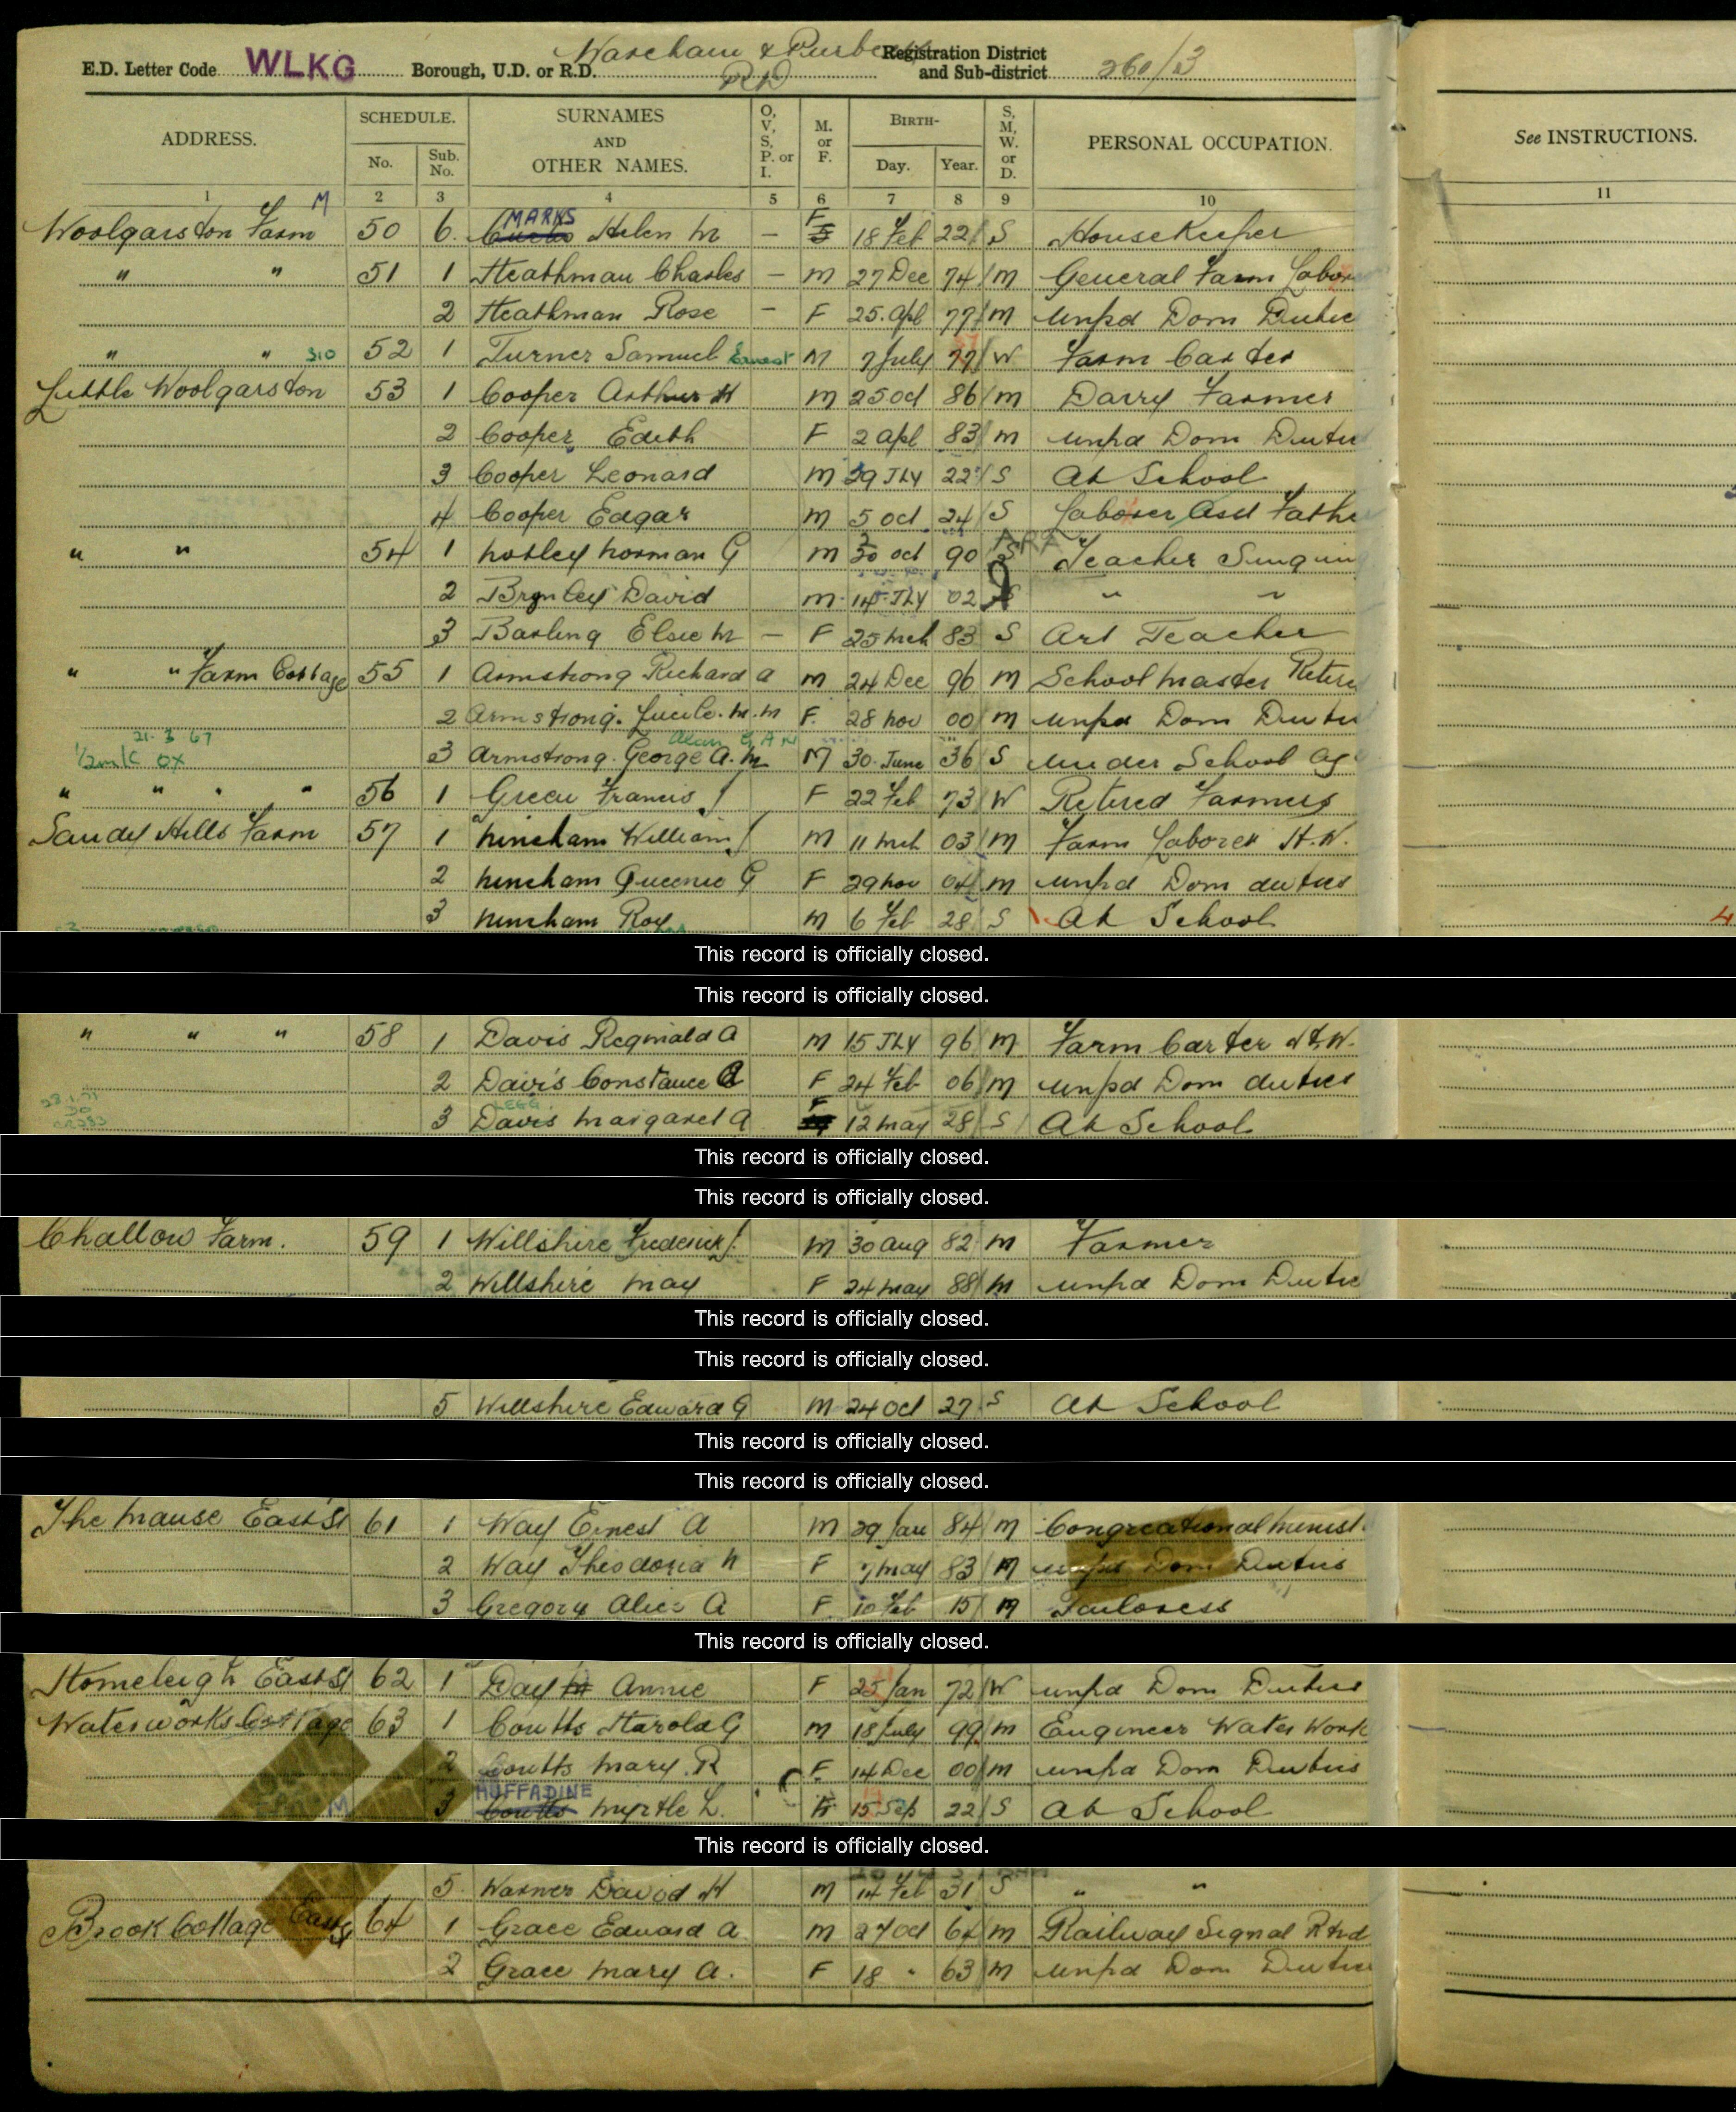 E.D. Letter Code WLKG Borough, U.D. or R.D. Wareham & Purbeck RD Registration District and Sub-district 260/3
ADDRESS. SCHEDULE. No. Sub. No. SURNAMES AND OTHER NAMES. O, V, S, P. or I. M. or F. BIRTH- Day. Year. S, M, W. or D. PERSONAL OCCUPATION. See INSTRUCTIONS.
1 2 3 4 5 6 7 8 9 10 11
M
MARKS F
Woolgarston Farm 50 6. Helen M — 18 Feb 22 S HouseKeeper
" " 51 1 Heathman Charles — M 27 Dec 74 M General Farm Labor
2 Heathman Rose — F 25 Apl 77 M Unpd Dom Dutie
" " 310 52 1 Turner Samuel Ernest M 7 July 77 W Farm Carter
Little Woolgarston 53 1 Cooper Arthur H M 25 Oct 86 M Darry Farmer
2 Cooper Edith F 2 Apl 83 M Unpd Dom Dutie
3 Cooper Leonard M 29 Jly 22 S At School
4 Cooper Edgar M 5 Oct 24 S Laborer Asst Fathe
" " 54 1 Notley Norman G M 30 Oct 90 S Teacher Singin
2 Brynley David M 14 Jly 02 S " "
3 Barling Elsie M — F 25 Mch 83 S Art Teacher
" " Farm Cottage 55 1 Armstrong Richard A M 24 Dec 96 M Schoolmaster Retire
2 Armstrong. Lucile. M. M F. 28 Nov 00 M Unpd Dom Dutie
21.3 67 Alan G A N
3 Armstrong. George A. M M 30 June 36 S Under School Ag
" " " " 56 1 Green Francis J F 22 Feb 73 W Retired Farmers
Sandy Hills Farm 57 1 Nineham William J M 11 Mch 03 M Farm Laborer H.W.
2 Nineham Queenie G F 29 Nov 04 M Unpd Dom duties
3 Nineham Roy M 6 Feb 28 S At School
This record is officially closed.
This record is officially closed.
" " " 58 1 Davis Reginald A M 15 Jly 96 M Farm Carter H.W.
2 Davis Constance F 24 Feb 06 M Unpd Dom duties
LEGG F
3 Davis Margaret A 12 May 28 S At School
This record is officially closed.
This record is officially closed.
Challow Farm. 59 1 Willshire Frederick J. M 30 Aug 82 M Farmer
2 Willshire May F 24 May 88 M Unpd Dom Dutie
This record is officially closed.
This record is officially closed.
5 Willshire Edward G M 24 Oct 27 S At School
This record is officially closed.
This record is officially closed.
The Manse East St 61 1 Way Ernest A M 29 Jan 84 M Congreational Minist
2 Way Theodoria F 7 May 83 M Unpd Dom Duties
3 Gregory Alice A F 10 Feb 15 M Tailoress
This record is officially closed.
Homeleigh East St 62 1 Day Annie F 25 Jan 72 W Unpd Dom Duties
Waterworks Cottage 63 1 Coutts Harold G M 18 July 99 M Engineer Water Work
2 Coutts Mary. R F 14 Dec 00 M Unpd Dom Duties
HUFFADINE
3 Coutts Myrtle L. 15 Sep 22 S At School
This record is officially closed.
5 Warner David H M 14 Feb 31 S " "
Brook Cottage East St 64 1 Grace Edward A M 27 Oct 64 M Railway Signal Rtrd
2 Grace Mary A. F 18 " 63 M Unpd Dom Dutie